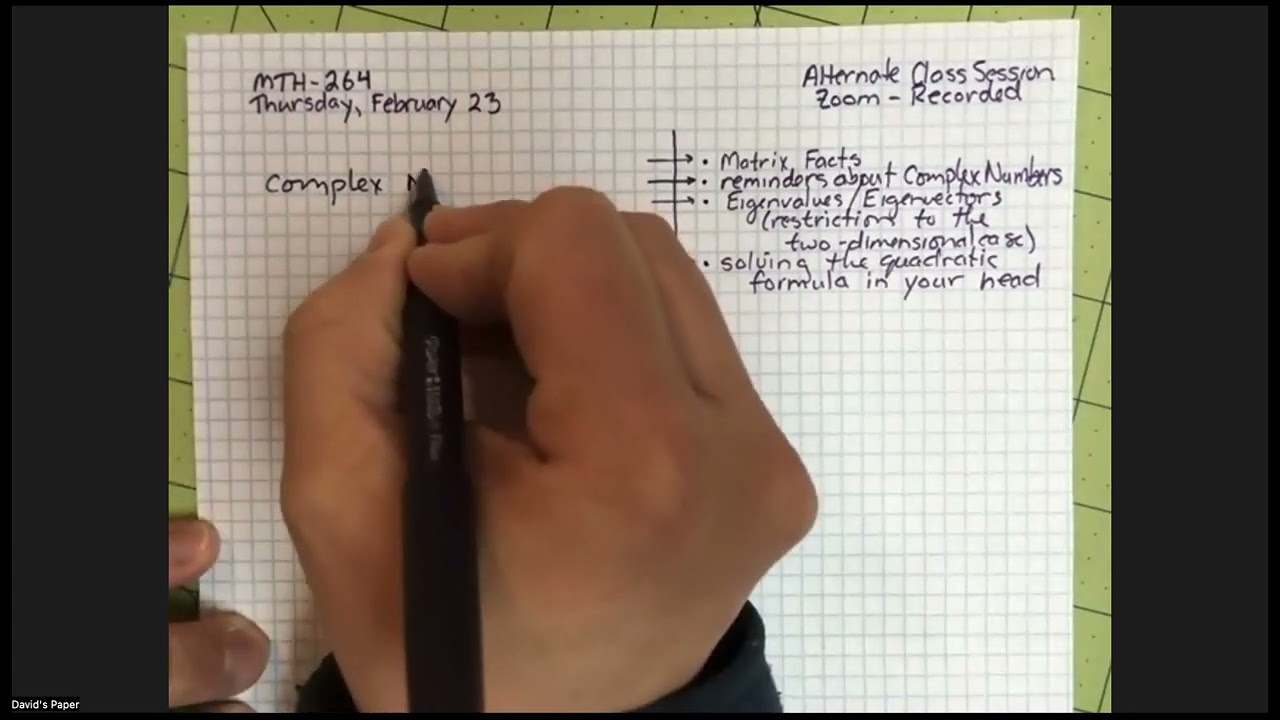 MTH-264
Thursday, February 23
Alternate Class Session
Zoom - Recorded
Complex N
• Matrix Facts
• reminders about Complex Numbers
• Eigenvalues/Eigenvectors
(restriction to the
two-dimensional case)
• solving the quadratic
formula in your head
David's Paper